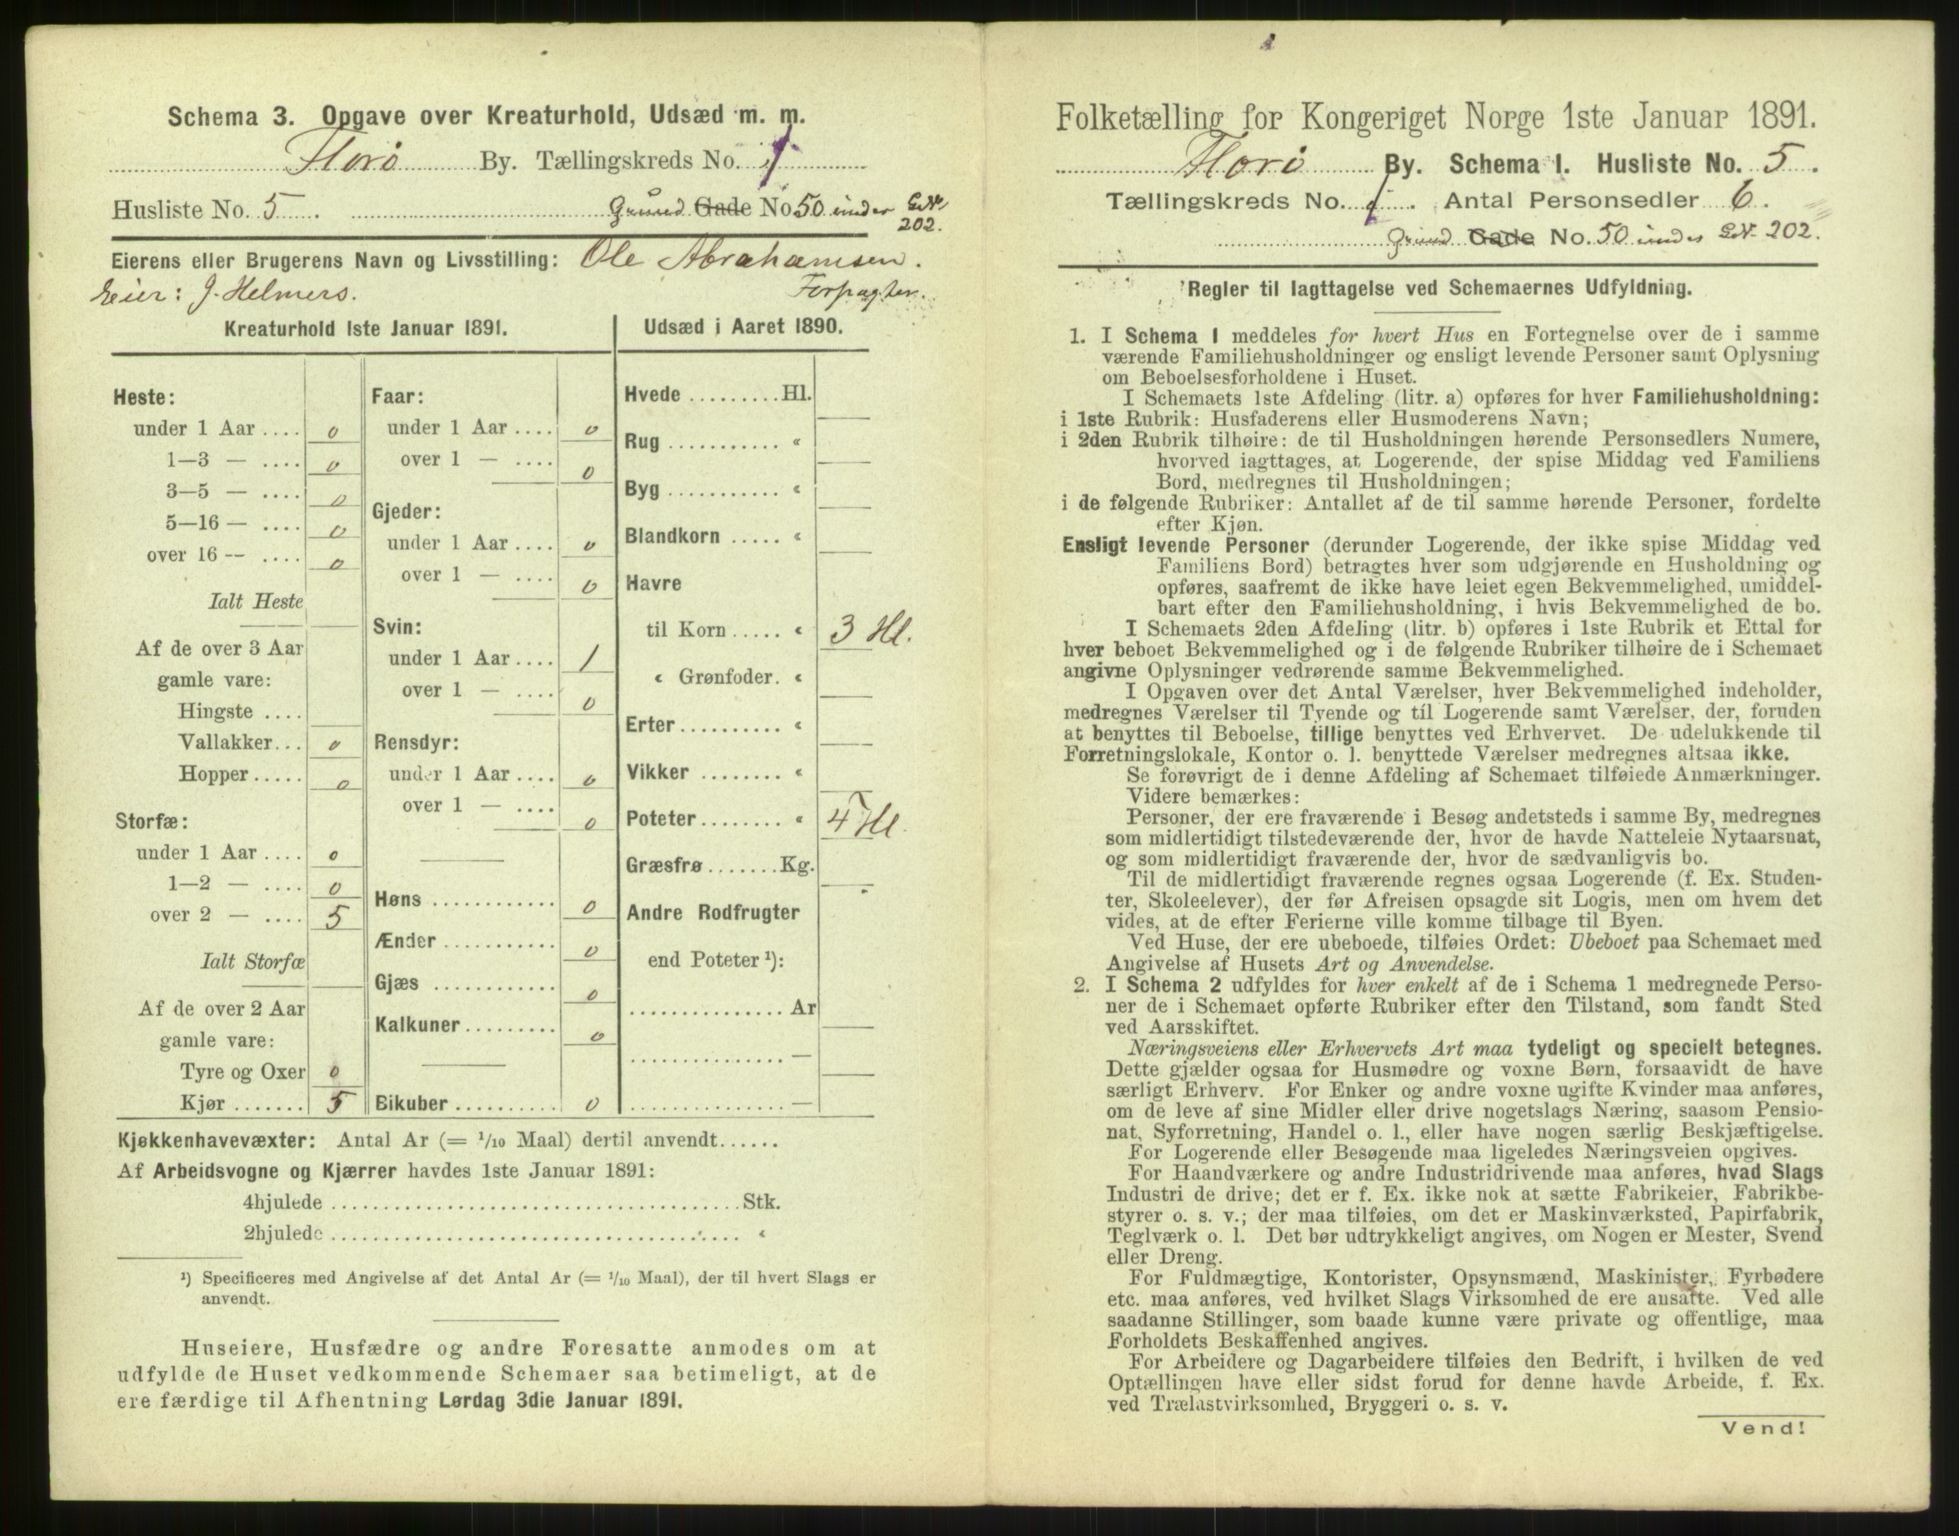 Schema 3. Opgave over Kreaturhold, Udsæd m. m.
Florø By. Tællingskreds No. 1
Husliste No. 5. Grund Gade No 50 under G.N. 202.
Eierens eller Brugerens Navn og Livsstilling: Ole Abrahamsen.
Eier: J. Helmers. Forpagter.
Kreaturhold 1ste Januar 1891.
Heste:
under 1 Aar .... 0
1—3 — .... 0
3—5 — .... 0
5—16 — .... 0
over 16 -- .... 0
Ialt Heste
Af de over 3 Aar
gamle vare:
Hingste ....
Vallakker... 0
Hopper..... 0
Storfæ:
under 1 Aar .... 0
1—2 — .... 0
over 2 — .... 5
Ialt Storfæ
Af de over 2 Aar
gamle vare:
Tyre og Oxer 0
Kjør....... 5
Faar:
under 1 Aar .... 0
over 1 — .... 0
Gjeder:
under 1 Aar .... 0
over 1 — .... 0
Svin:
under 1 Aar .... 1
over 1 — .... 0
Rensdyr:
under 1 Aar .... 0
over 1 — .... 0
Høns ............ 0
Ænder ........... 0
Gjæs ............ 0
Kalkuner......... 0
Bikuber .......... 0
Udsæd i Aaret 1890.
Hvede ......... Hl.
Rug ........... «
Byg ........... «
Blandkorn ..... «
Havre
til Korn..... « 3 Hl.
« Grønfoder. «
Erter ......... «
Vikker ........ «
Poteter........ « 4 Hl.
Græsfrø ....... Kg.
Andre Rodfrugter
end Poteter ¹):
............... Ar
............... —
............... —
Kjøkkenhavevæxter: Antal Ar (= 1/10 Maal) dertil anvendt......
Af Arbeidsvogne og Kjærrer havdes 1ste Januar 1891:
4hjulede ........................................ Stk.
2hjulede ........................................ «
¹) Specificeres med Angivelse af det Antal Ar (= 1/10 Maal), der til hvert Slags er
anvendt.
Huseiere, Husfædre og andre Foresatte anmodes om at
udfylde de Huset vedkommende Schemaer saa betimeligt, at de
ere færdige til Afhentning Lørdag 3die Januar 1891.
Folketælling for Kongeriget Norge 1ste Januar 1891.
Florø By. Schema 1. Husliste No. 5.
Tællingskreds No. 1. Antal Personsedler 6.
Grund Gade No. 50 under G.N. 202.
Regler til Iagttagelse ved Schemaernes Udfyldning.
1. I Schema 1 meddeles for hvert Hus en Fortegnelse over de i samme
værende Familiehusholdninger og ensligt levende Personer samt Oplysning
om Beboelsesforholdene i Huset.
I Schemaets 1ste Afdeling (litr. a) opføres for hver Familiehusholdning:
i 1ste Rubrik: Husfaderens eller Husmoderens Navn;
i 2den Rubrik tilhøire: de til Husholdningen hørende Personsedlers Numere,
hvorved iagttages, at Logerende, der spise Middag ved Familiens
Bord, medregnes til Husholdningen;
i de følgende Rubriker: Antallet af de til samme hørende Personer, fordelte
efter Kjøn.
Ensligt levende Personer (derunder Logerende, der ikke spise Middag ved
Familiens Bord) betragtes hver som udgjørende en Husholdning og
opføres, saafremt de ikke have leiet egen Bekvemmelighed, umiddel-
bart efter den Familiehusholdning, i hvis Bekvemmelighed de bo.
I Schemaets 2den Afdeling (litr. b) opføres i 1ste Rubrik et Ettal for
hver beboet Bekvemmelighed og i de følgende Rubriker tilhøire de i Schemaet
angivne Oplysninger vedrørende samme Bekvemmelighed.
I Opgaven over det Antal Værelser, hver Bekvemmelighed indeholder,
medregnes Værelser til Tyende og til Logerende samt Værelser, der, foruden
at benyttes til Beboelse, tillige benyttes ved Erhvervet. De udelukkende til
Forretningslokale, Kontor o. l. benyttede Værelser medregnes altsaa ikke.
Se forøvrigt de i denne Afdeling af Schemaet tilføiede Anmærkninger.
Videre bemærkes:
Personer, der ere fraværende i Besøg andetsteds i samme By, medregnes
som midlertidigt tilstedeværende der, hvor de havde Natteleie Nytaarsnat,
og som midlertidigt fraværende der, hvor de sædvanligvis bo.
Til de midlertidigt fraværende regnes ogsaa Logerende (f. Ex. Studen-
ter, Skoleelever), der før Afreisen opsagde sit Logis, men om hvem det
vides, at de efter Ferierne ville komme tilbage til Byen.
Ved Huse, der ere ubeboede, tilføies Ordet: Ubeboet paa Schemaet med
Angivelse af Husets Art og Anvendelse.
2. I Schema 2 udfyldes for hver enkelt af de i Schema 1 medregnede Perso-
ner de i Schemaet opførte Rubriker efter den Tilstand, som fandt Sted
ved Aarsskiftet.
Næringsveiens eller Erhvervets Art maa tydeligt og specielt betegnes.
Dette gjælder ogsaa for Husmødre og voxne Børn, forsaavidt de have
særligt Erhverv. For Enker og andre voxne ugifte Kvinder maa anføres,
om de leve af sine Midler eller drive nogetslags Næring, saasom Pensio-
nat, Syforretning, Handel o. l., eller have nogen særlig Beskjæftigelse.
For Logerende eller Besøgende maa ligeledes Næringsveien opgives.
For Haandværkere og andre Industridrivende maa anføres, hvad Slags
Industri de drive; det er f. Ex. ikke nok at sætte Fabrikeier, Fabrikbe-
styrer o. s. v.; der maa tilføies, om det er Maskinværksted, Papirfabrik,
Teglværk o. l. Det bør udtrykkeligt angives, om Nogen er Mester, Svend
eller Dreng.
For Fuldmægtige, Kontorister, Opsynsmænd, Maskinister, Fyrbødere
etc. maa anføres, ved hvilket Slags Virksomhed de ere ansatte. Ved alle
saadanne Stillinger, som baade kunne være private og offentlige, maa
Forholdets Beskaffenhed angives.
For Arbeidere og Dagarbeidere tilføies den Bedrift, i hvilken de ved
Optællingen have eller sidst forud for denne havde Arbeide, f. Ex.
ved Trælastvirksomhed, Bryggeri o. s. v.
Vend!